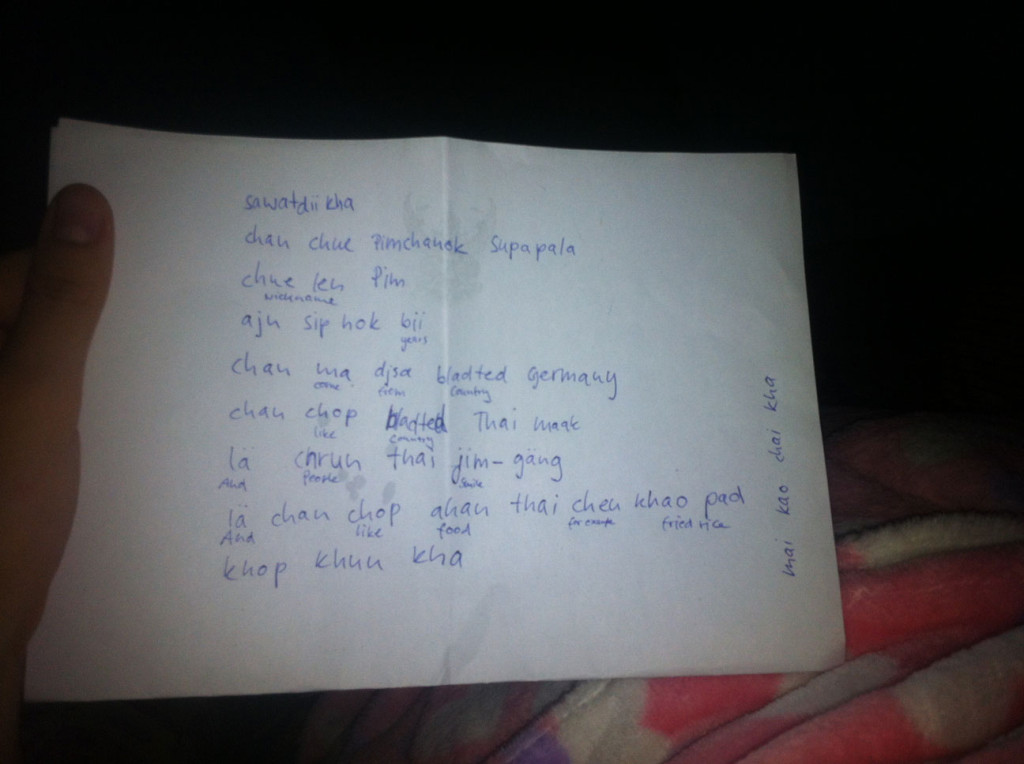 sawatdii kha
chan chue Pimchanok Supapala
chue len Pim
Nickname
aju sip hok bii
years
chan ma djsa bladted Germany
come from country
chan chop bladted Thai maak
like country
lä chrun thai jim-gäng
And People Smile
lä chan chop ahan thai chen khao pad
And like food for example fried rice
khop khun kha
mai kao chai kha